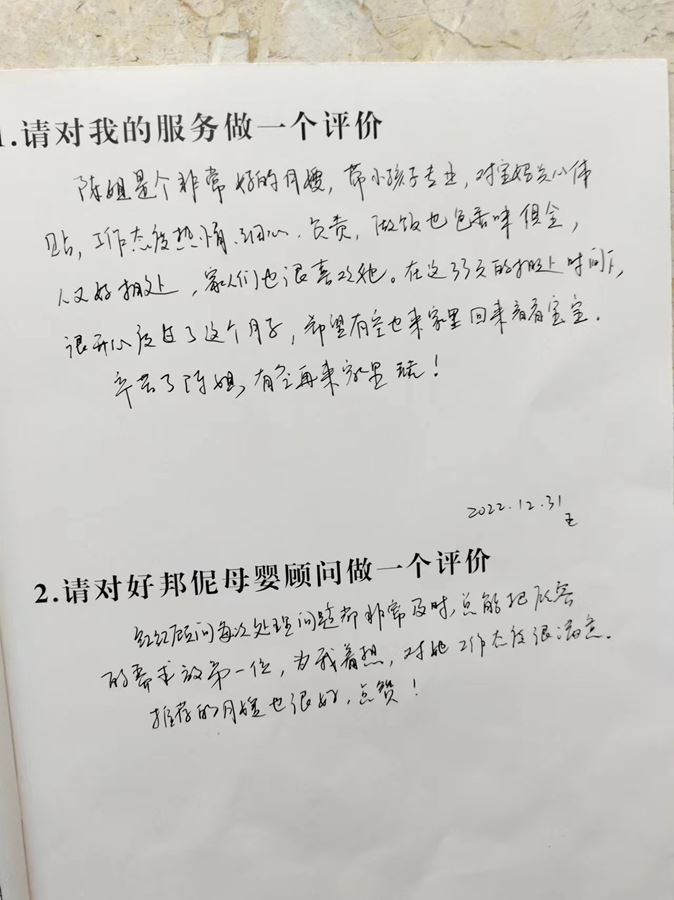 1.请对我的服务做一个评价
陈姐是个非常好的月嫂，带小孩子专业，对宝妈关心体
贴，工作态度热情、细心、负责，做饭也色香味俱全，
人又好相处，家人们也很喜欢她。在这33天的相处时间下，
很开心度过了这个月子，希望有空也来家里回来看看宝宝．
辛苦了陈姐，有空再来家里玩！
2022.12.31
王
2.请对好邦伲母婴顾问做一个评价
红红顾问每次处理问题都非常及时，总能把顾客
的要求放第一位，为我着想，对她工作态度很满意．
推荐的月嫂也很好，点赞！